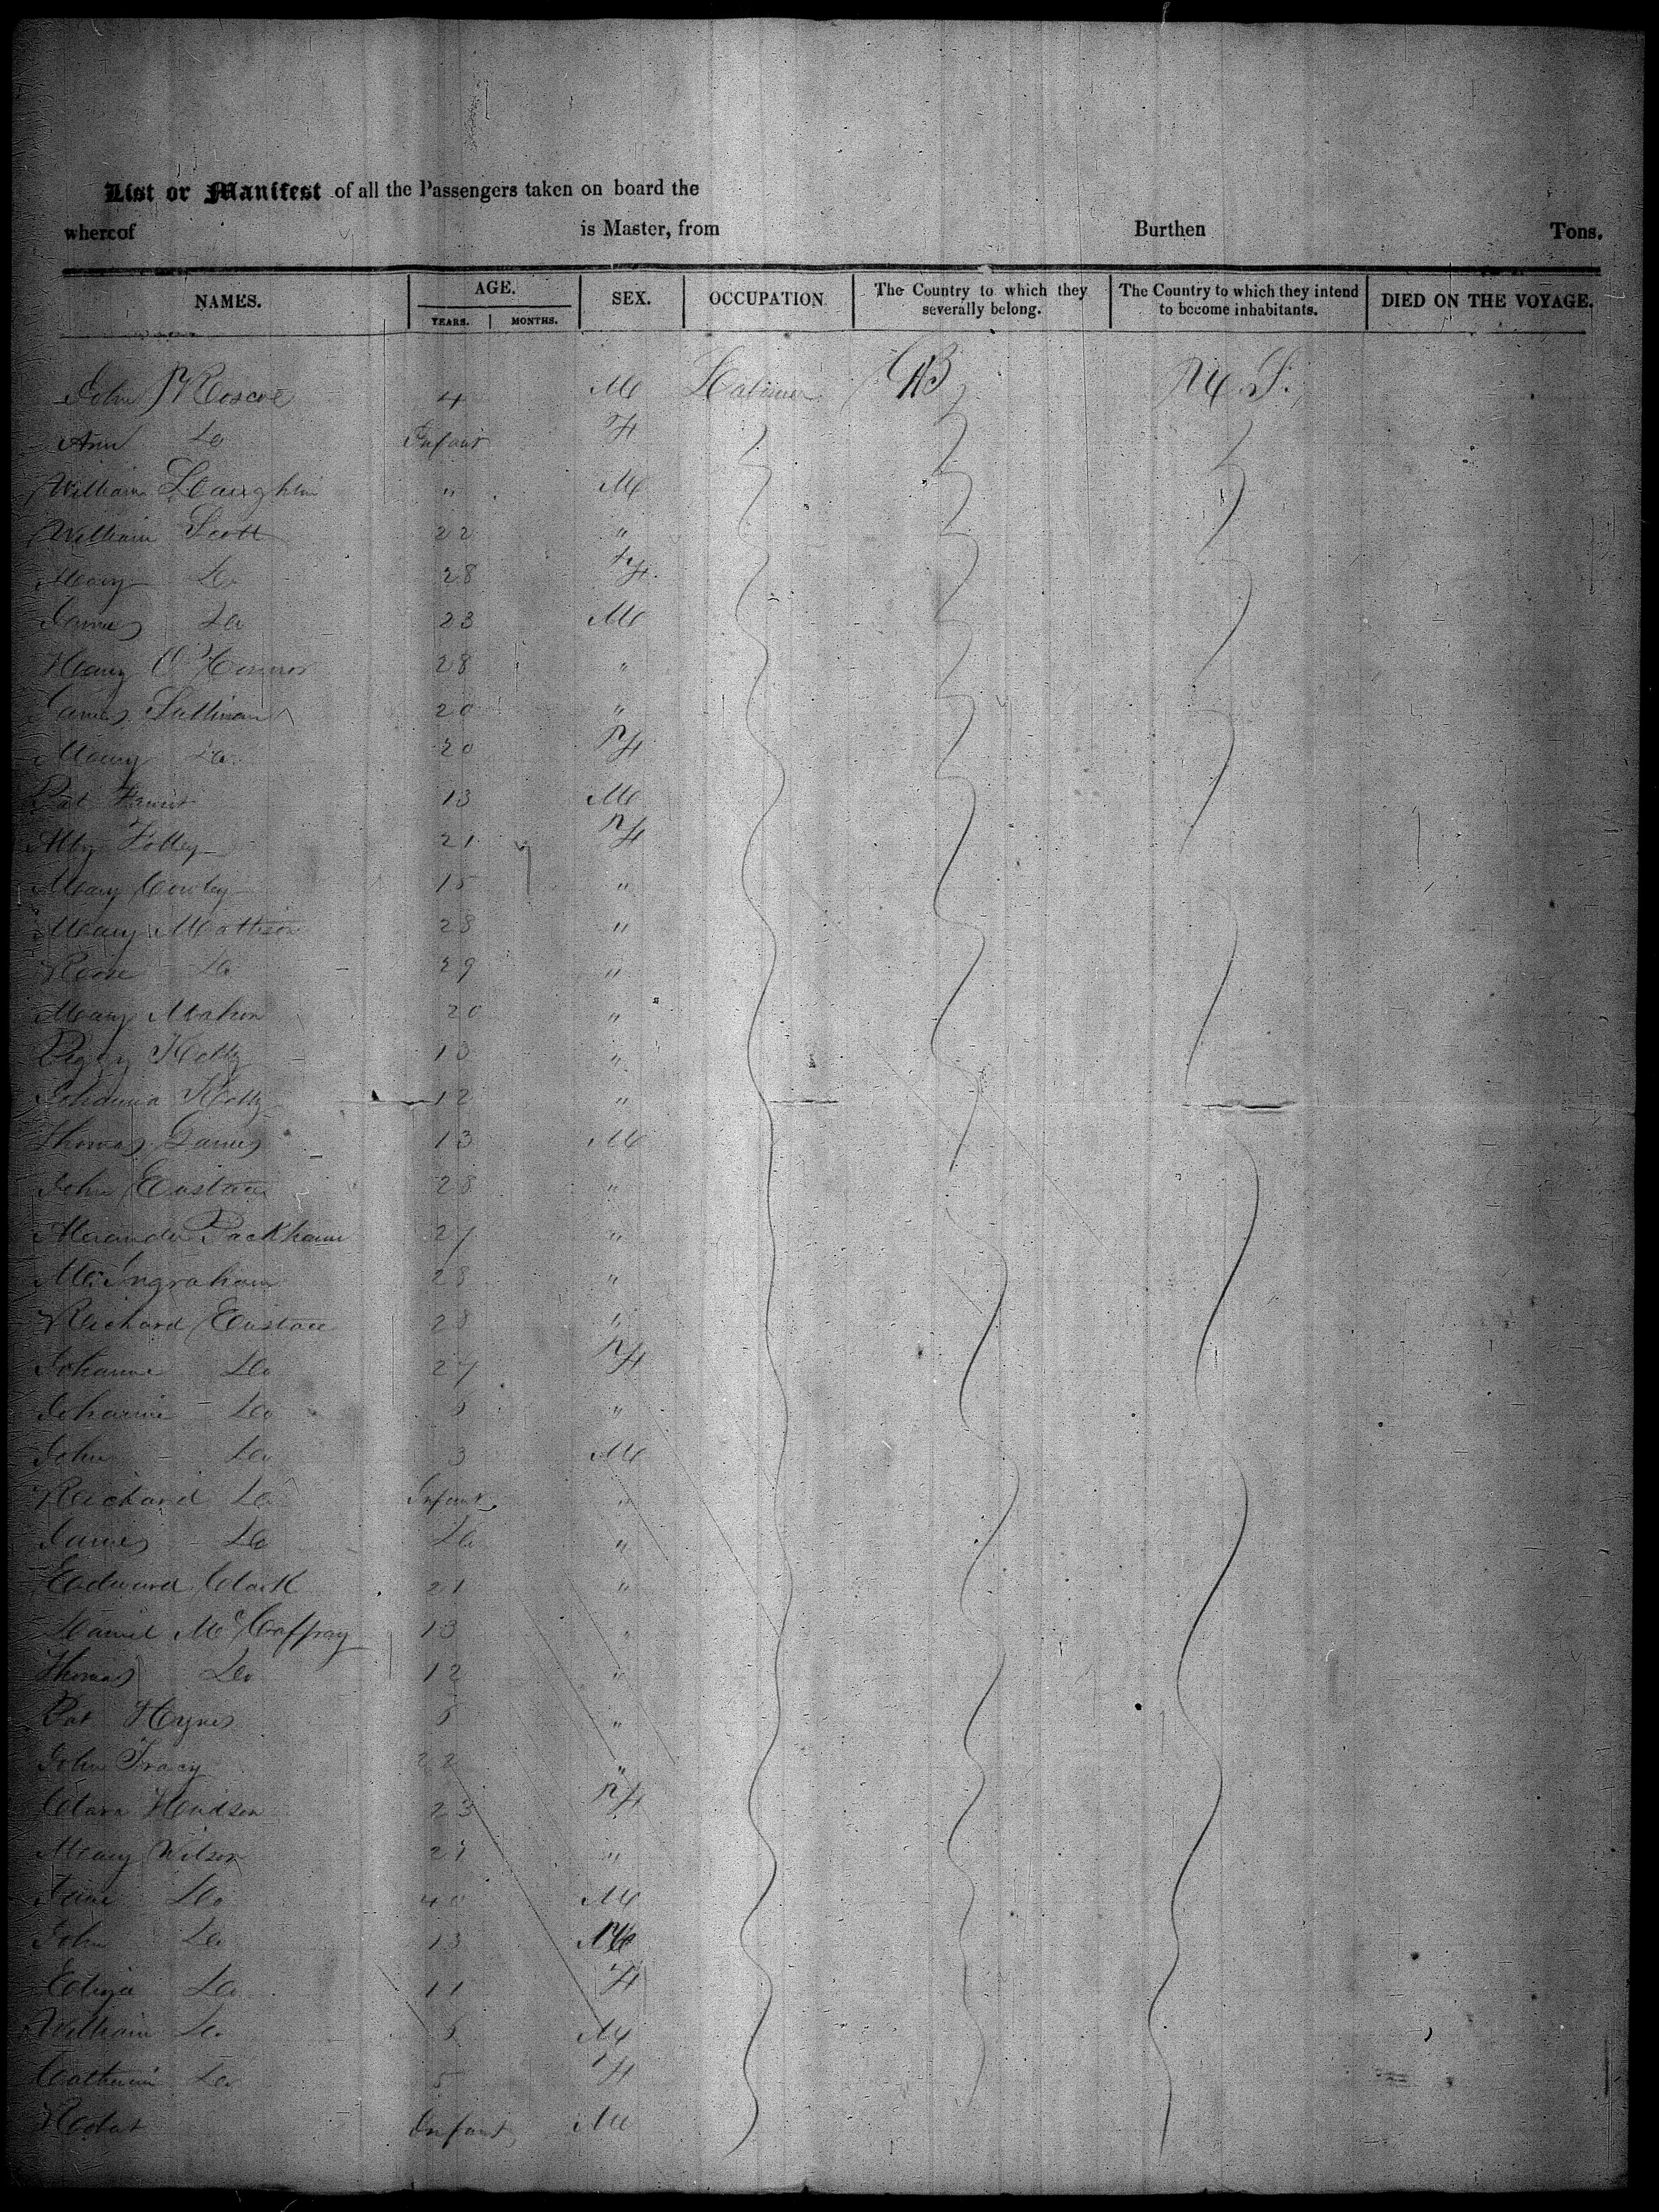 List or Manifest of all the Passengers taken on board the
whereof is Master, from Burthen Tons.
NAMES. AGE. YEARS. MONTHS. SEX. OCCUPATION The Country to which they severally belong. The Country to which they intend to become inhabitants. DIED ON THE VOYAGE.
John Roscoe 4 M GB U.S.
Ann Do Infant F
William Laughlin " M
William Scott 22 "
Mary Do 28 F
James Do 23 M
Henry O'Connor 28 "
James Sullivan 20 "
Mary Do 20 F
Pat 13 M
Folley 21 F
Mary Conley 15 "
Mary Mattison 28 "
Rose Do 29 "
Mary Mahon 20 "
Peggy Kelly 10 "
Johanna Kelly 12 "
Thomas James 13 M
John Eustace 28 "
Alexander Packham 27 "
Ingraham 28 "
Richard Eustace 28 "
Johanna Do 27 F
Johanna Do 5 "
John Do 3 M
Richard Do Infant "
James Do Do "
Edward Clark 21 "
Daniel McCaffray 13 "
Thomas Do 12 "
Pat Hynes 5 "
John Tracy 22 "
Clara Hudson 23 F
Mary Wilson 21 "
Jane Do 40 M
John Do 13 M
Eliza Do 11 F
William Do M
Catherine Do 5 F
Robert Infant M